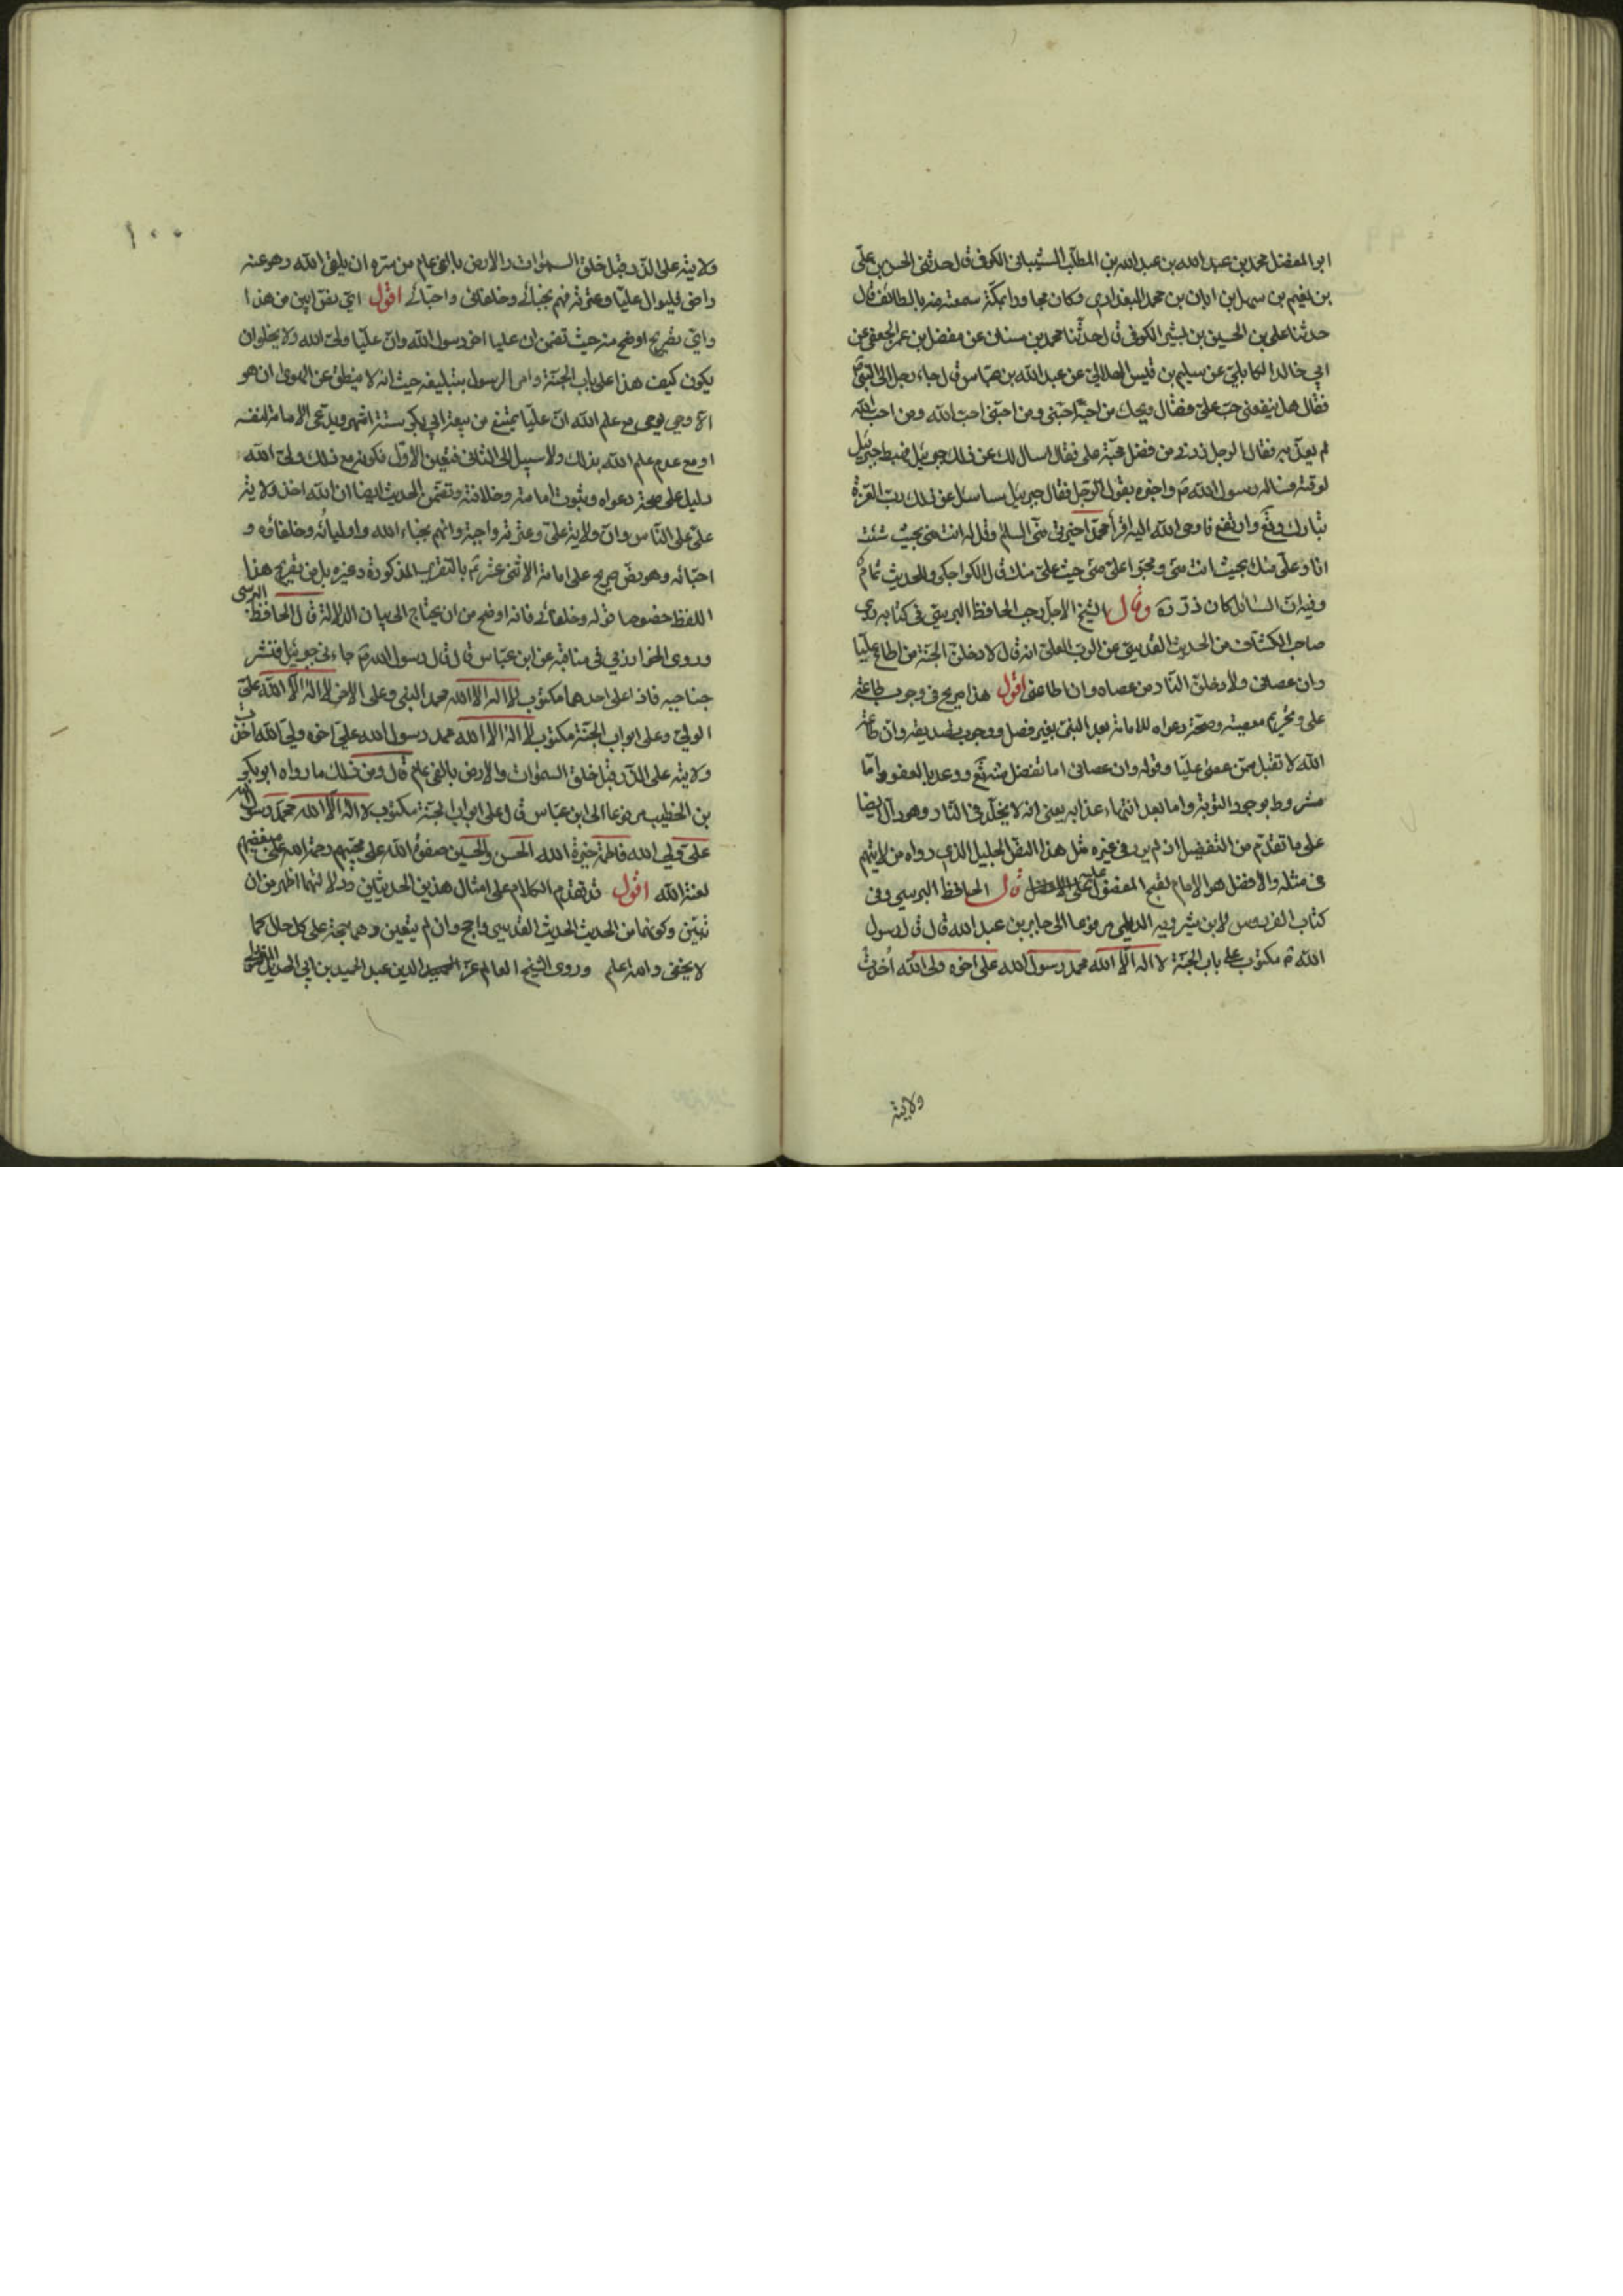 ابو المفضل محمد بن عبد الله بن عبد الله بن المطلب الشيباني الكوفي قال حدثني الحسن بن علي
بن نعيم بن سهل بن ابان بن محمد البغدادي وكان مجاورا بمكة سمعته منه بالطائف قال
حدثنا علي بن الحسين بن بشير الكوفي قال حدثنا محمد بن سنان عن مفضل بن عمر الجعفي عن
ابي خالد الكابلي عن سليم بن قيس الهلالي عن عبد الله بن عباس قال جاء رجل الى النبي ص
فقال هل ينفعني حب علي فقال ويحك من احبه احبني ومن احبني احب الله ومن احب الله
لم يعذبه فقال الرجل زدني من فضل محبة علي فقال اسال لك عن ذلك جبرئيل فهبط جبرئيل
لوقته فساله رسول الله ص واخبره بقول الرجل فقال جبرئيل ساسئل عن ذلك رب العزة
تبارك وتع وارتفع فاوحى الله اليه اقرأ محمدا خيرتي مني السلم وقل له انت مني بحيث شئت
انا وعلي منك بحيث انت مني ومحبوا علي مني حيث علي منك قال الكراجكي والحديث تمام
وفيه ان السائل كان ذر ره وقال الشيخ الاجل رجب الحافظ البرسي في كتابه روى
صاحب الكشاف من الحديث القدسي عن الرب العلي انه قال لادخلن الجنة من اطاع عليا
وان عصاني ولادخلن النار من عصاه وان اطاعني اقول هذا صريح في وجوب طاعة
علي وتحريم معصيته وصحة دعواه للامامة بعد النبي بغير فصل ووجوب تصديقه وان طاعة
الله لا تقبل ممن عصى عليا وقوله وان عصاني اما تفضل منه تع ووعد بالعفو واما
مشروط بوجود التوبة واما بعد انتهاء عذابه يعني انه لا يخلد في النار وهو دال ايضا
على ما تقدم من التفضيل اذ لم يرد في غيره مثل هذا النقل الجليل الذي رواه من لا يتهم
في مثله والافضل هو الامام لقبح المفضول على قال الحافظ البرسي وفي
كتاب الفردوس لابن شيرويه الديلمي مرفوعا الى جابر بن عبد الله قال قال رسول
الله ص مكتوب على باب الجنة لا اله الا الله محمد رسول الله علي اخوه ولي الله أخذت
ولايته
١٠٠
ولايته على الذر قبل خلق السموات والارض بالفي عام من سره ان يلقى الله وهو عنه
راض فليوال عليا وعترته فهم نجبائي وخلفائي واحبائي اقول اي نص ابين من هذا
واي تصريح اوضح منه حيث تضمن ان عليا اخو رسول الله وان عليا ولي الله ولا يخلو ان
يكون كيف هذا على باب الجنة وامر الرسول بتبليغه حيث انه لا ينطق عن الهوى ان هو
الا وحي يوحى مع علم الله ان عليا يمتنع من بيعة ابي بكر ستة اشهر ويدعى الامامة لنفسه
او مع عدم علم الله بذلك ولا سبيل الى الثاني فتعين الاول فكونه مع ذلك ولي الله
دليل على صحة دعواه وبثبوت امامته وخلافته وتضمن الحديث ايضا ان الله اخذ ولاية
علي على الناس وان ولاية علي وعترته واجبة وانهم نجباء الله واوليائه وخلفاؤه و
احبائه وهو نص صريح على امامة الاثنى عشر ثم بالتقريب المذكورة وغيره بل من تصريح هذا
اللفظ خصوصا قوله وخلفائي فانه اوضح من ان يحتاج الى بيان الدلالة قال الحافظ البرسي
وروى الخوارزمي في مناقبه عن ابن عباس قال قال رسول الله ص جاءني جبرئيل فنشر
جناحيه فاذا على احدهما مكتوب لا اله الا الله محمد النبي وعلى الاخر لا اله الا الله علي
الولي وعلى ابواب الجنة مكتوب لا اله الا الله محمد رسول الله علي اخوه ولي الله اخذت
ولايته على الذر قبل خلق السموات والارض بالفي عام قال ومن ذلك ما رواه ابو بكر
بن الخطيب مرفوعا الى ابن عباس قال على ابواب الجنة مكتوب لا اله الا الله محمد رسول الله
علي ولي الله فاطمة خيرة الله الحسن والحسين صفوة الله على محبهم رحمة الله على مبغضهم
لعنة الله اقول قد تقدم الكلام على امثال هذين الحديثين ودلالتهما اظهر من ان
تبين وكونهما من الحديث القدسي راجح وان لم يتعين وهما حجة على كل حال كما
لا يخفى والله اعلم وروى الشيخ العالم عز الدين عبد الحميد بن ابي الحديد